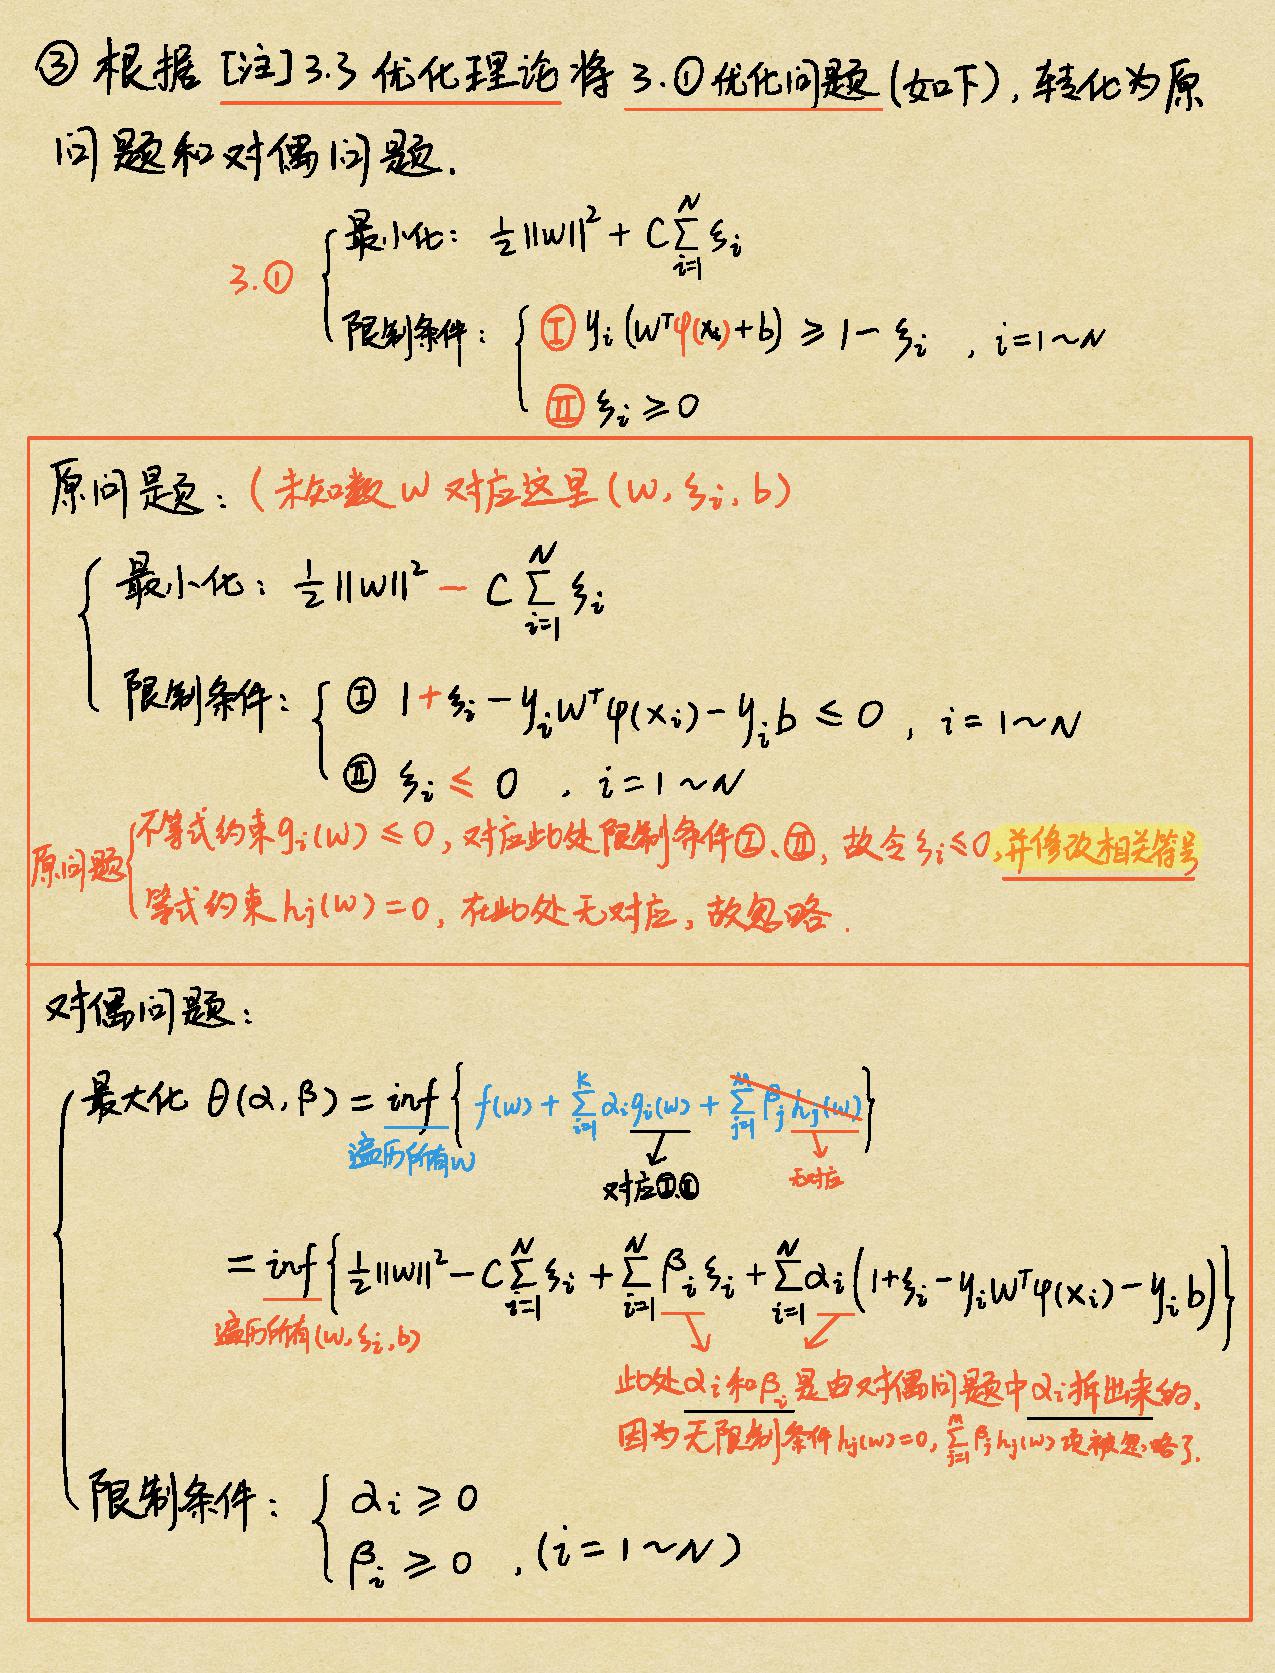 ③ 根据 [注] 3.3 优化理论将 3.① 优化问题 (如下), 转化为原
问题和对偶问题.
3.①
最小化: ½||W||² + C∑_{i=1}^{N} ξi
限制条件: Ⅰ yi (WᵀΦ(xi)+b) ≥ 1 - ξi , i=1~N
Ⅱ ξi ≥ 0
原问题: (未知数 W 对应这里 (W, ξi, b)
最小化: ½||W||² - C∑_{i=1}^{N} ξi
限制条件: Ⅰ 1 + ξi - yiWᵀφ(xi) - yib ≤ 0 , i=1~N
Ⅱ ξi ≤ 0 , i=1~N
原问题
不等式约束gi(W) ≤ 0, 对应此处限制条件Ⅰ、Ⅱ, 故令 ξi ≤ 0, 并修改相关符号
等式约束 hj(W) = 0, 在此处无对应, 故忽略.
对偶问题:
最大化 θ(α, β) = inf { f(w) + ∑_{i=1}^{K} αi gi(w) + ∑_{j=1}^{M} βj hj(w) }
遍历所有w
对应Ⅰ.Ⅱ
无对应
= inf { ½||W||² - C∑_{i=1}^{N} ξi + ∑_{i=1}^{N} βi ξi + ∑_{i=1}^{N} αi (1+ξi - yiWᵀφ(xi) - yib) }
遍历所有(w, ξi, b)
此处αi和βi是由对偶问题中αi拆出来的,
因为无限制条件hj(w)=0, ∑_{j=1}^{M} βjhj(w) 项被忽略了.
限制条件: αi ≥ 0
βi ≥ 0 , (i=1~N)